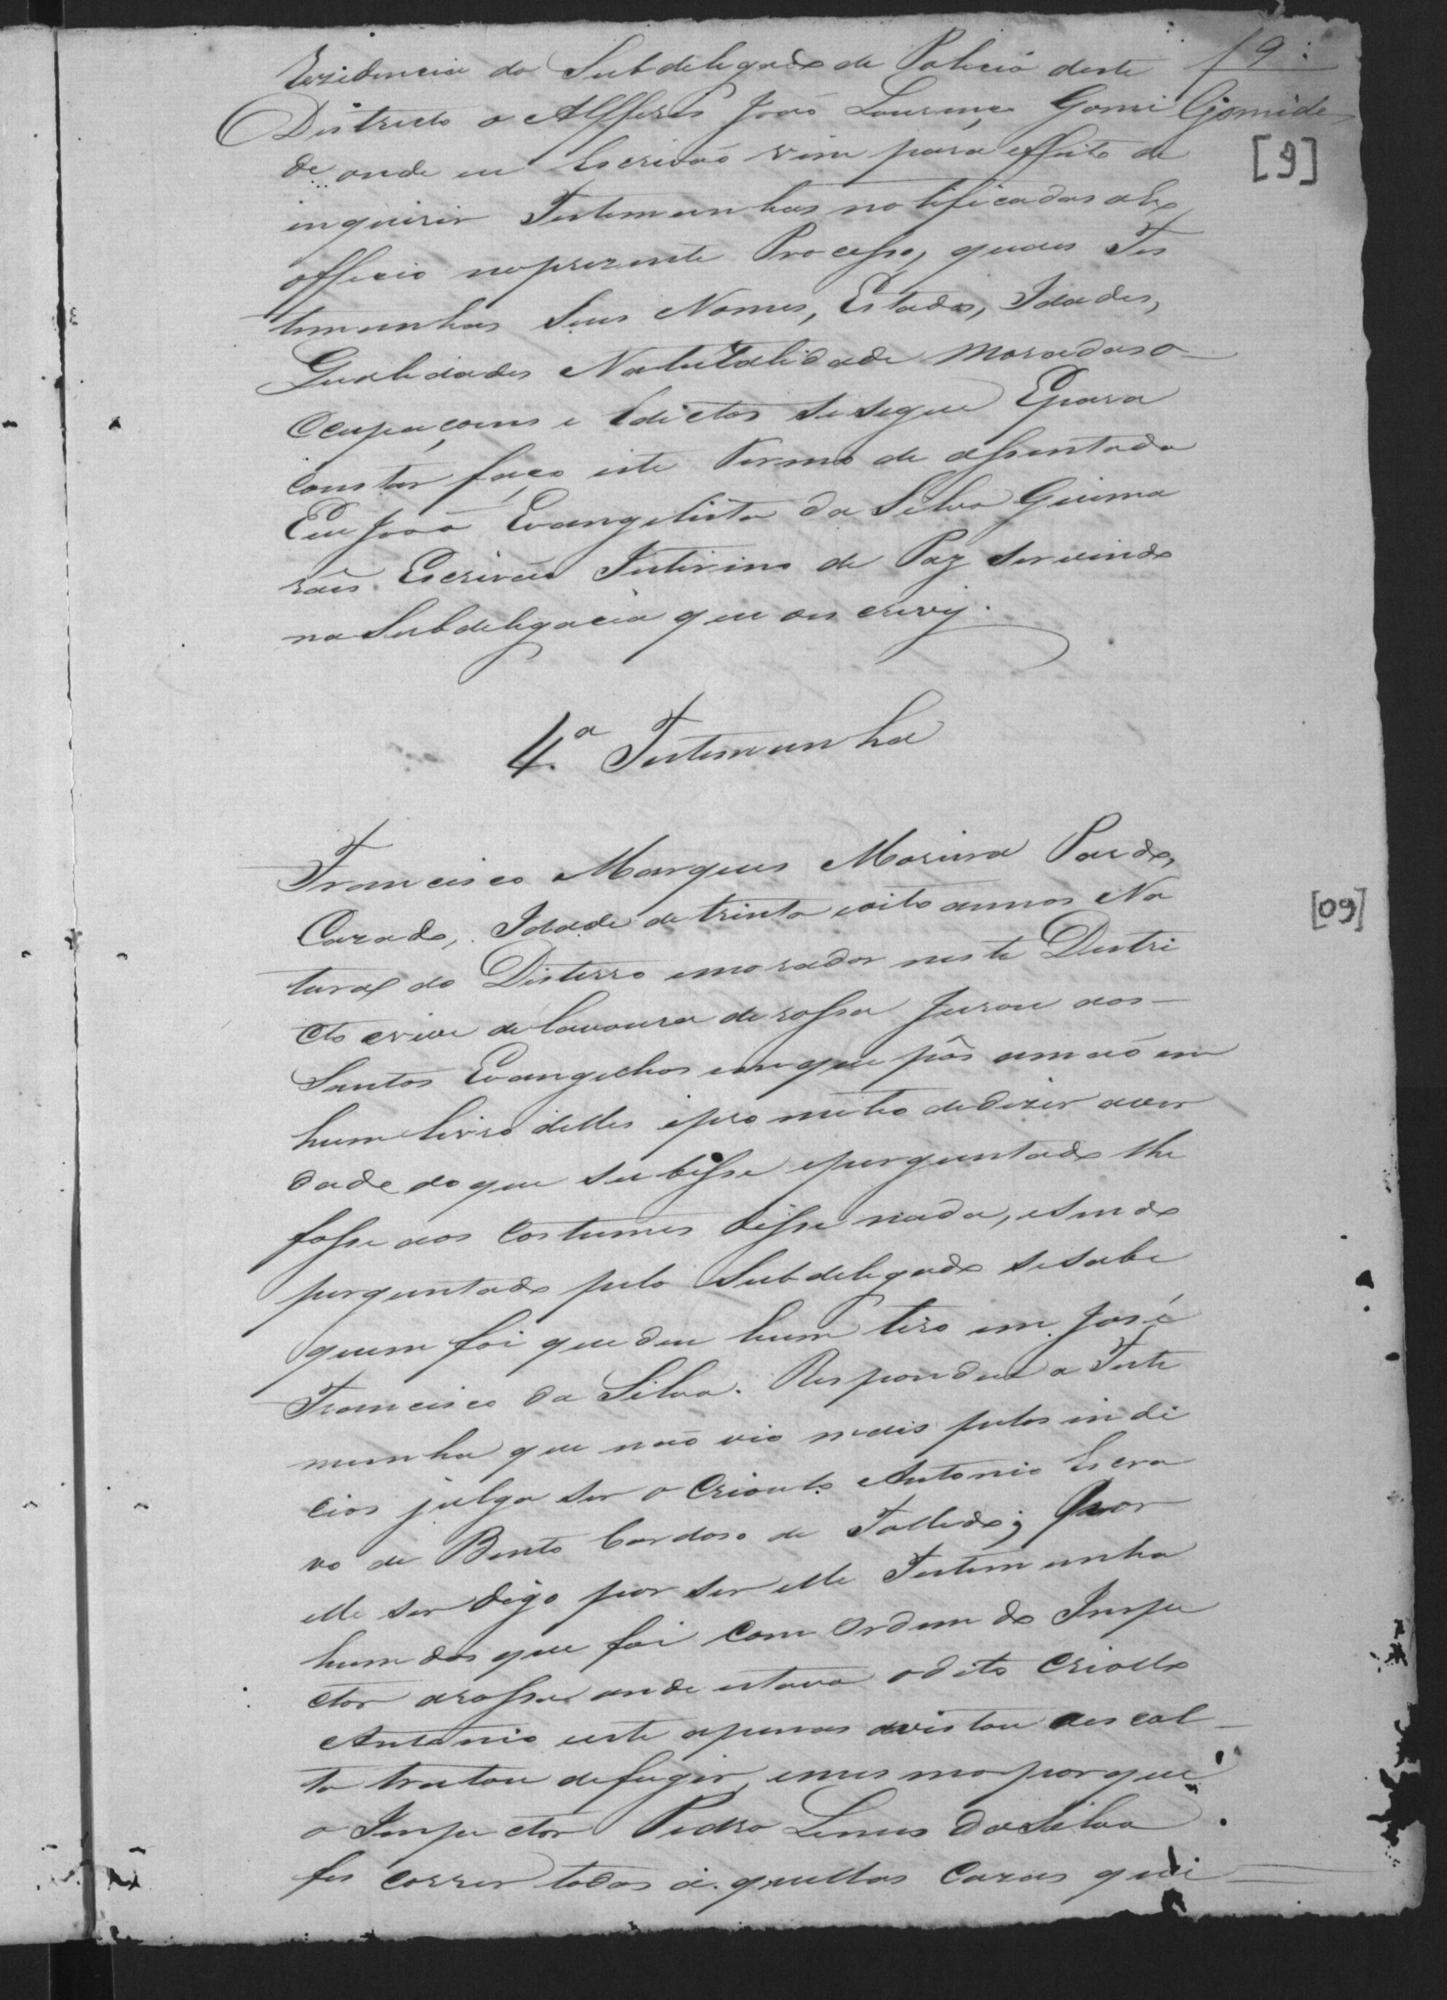 Rezidencia do Subdelegado de Policia deste
f 9:
Districto o Alfferes João Lourenço Gomi
Gomide
[9]
de onde eu Escrivão vim para effeito de
inquirir Testemunhas notificadas ale
officio no prezente Processo, quaes Tes
temunhas Seus Nomes, Estados, Idades,
Qualidades Naturalidade moradas o
Ccupaçoens e Edictos se segue Epara
constar faço este Termo de assentada
Eu João Evangelista da Silva Guima
rães Escrivão Interino de Paz servindo
na Subdelegacia que os crevy.
4.ª Testemunha
Francisco Marques Moreira Pardo,
[09]
Cazado, Idade de trinta eoito annos Na
tural do Disterro emorador neste Destri
cto evive de lavoura de rossa Jurou aos
Santos Evangelhos em que pôs amaõ em
hum livro delles eprometeo dedizer aver
dade doque subésse eperguntado lhe
fosse aos Costumes disse nada, esendo
perguntado pelo Subdelegado sesabe
quem foi que deu hum tiro em José
Francisco da Silva. Respondeu a Teste
munha que naõ vio mais pelos indi
cios julga ser o Crioulo Antonio Escra
vo de Bento Cardoso de Tolledo; Por
elle ser digo por ser elle Testemunha
hum dos que foi com Ordem do Inspe
ctor arossa onde estava odito Criollo
Antonio este apenas avistou aescol
ta tratou defugir, emesmo porque
o Inspector Pedro Lemes da Silva
fes correr todas aquellas Cazas que